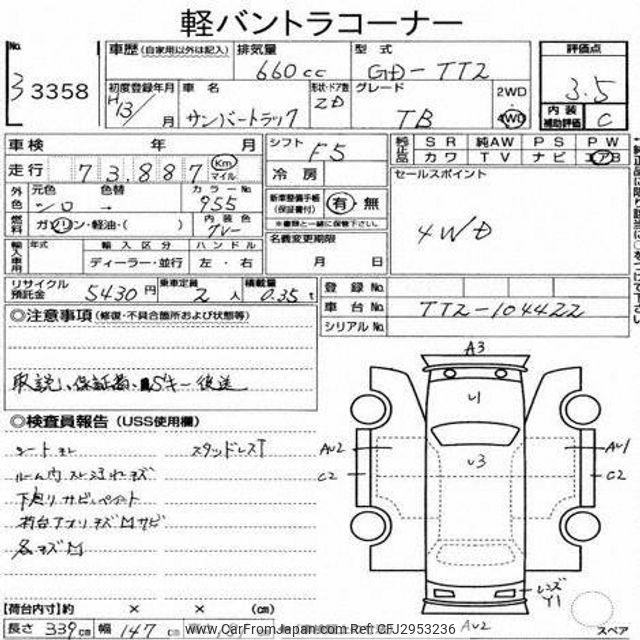 軽バントラコーナー
No. 33358
車歴 (自家用以外は記入) 排気量 660cc 型式 GD-TT2 評価点 3.5
初度登録年月 H13/ 月 車名 サンバートラック 形状・ドア数 2D グレード TB 2WD・4WD 内装補助評価 C
車検 年 月 シフト F5 純正品 SR 純AW PS PW
走行 73,887 Km マイル 冷房 カワ TV ナビ エアB
外色 元色 シロ 色替 → カラーNo. 955 新車整備手帳(保証書付) 有・無 セールスポイント
燃料 ガソリン・軽油・( ) 内装色 グレー ※書類と一緒に保管下さい。 4WD
輸入車用 年式 輸入区分 ハンドル 名義変更期限
ディーラー・並行 左・右 月 日
リサイクル預託金 5430円 乗車定員 2人 積載量 0.35t 登録No.
車台No. TT2-104422
シリアルNo.
◎注意事項 (修復・不具合箇所および状態等)
取説、保証書、Sキー後送
◎検査員報告 (USS使用欄)
シートヨレ スタッドレスT
ルーム内スレ汚れキズ
下廻りサビ、ペイント
荷台アオリキズ凹サビ
各キズ凹
A3
U1
U3
AU2 AU1
C2 C2
レンズ
Y1
AU2
スペア
【荷台内寸】約 × × (cm)
長さ 339cm 幅 147cm
www.CarFromJapan.com Ref:CFJ2953236